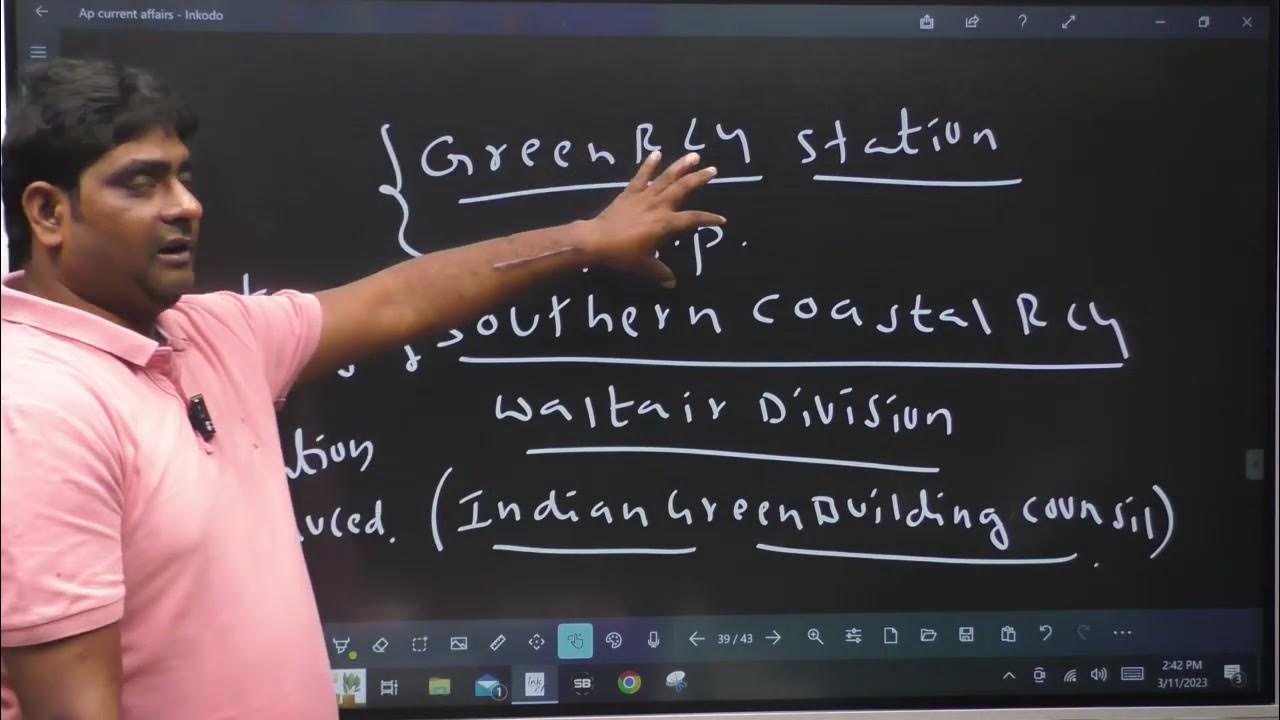 Ap current affairs - Inkodo
{ Green RLY station
.P.
southern coastal RLY
waltair Division
ation
uced. (Indian Green Building counsil)
39 / 43
SB
2:42 PM
3/11/2023